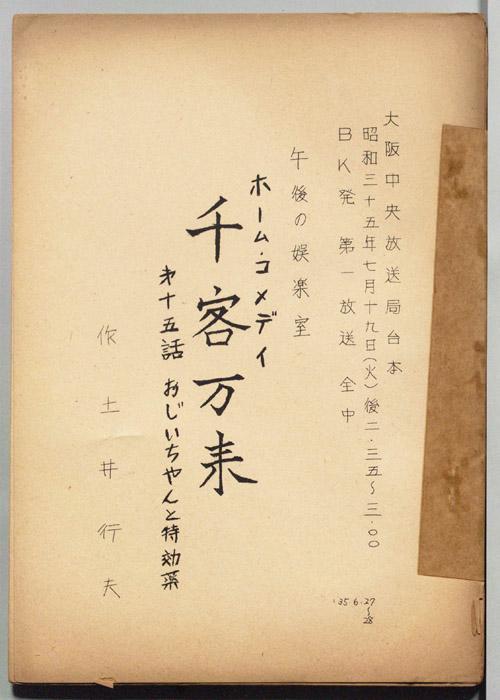 大阪中央放送局台本
昭和三十五年七月十九日(火)後二・三五～三・〇〇
BK発第一放送全中
午後の娯楽室
ホーム・コメディ
千客万来
才十五話 おじいちゃんと特効薬
作 土井行夫
'35.6.27
～28